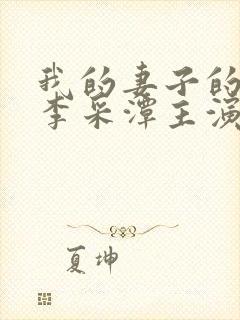 我的妻子的
李采潭主演
夏坤